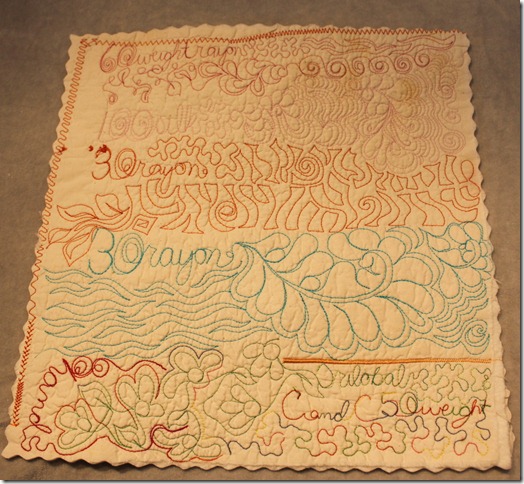 60 weight rayon
100
30 rayon
30 rayon
global
C and C 50 weight